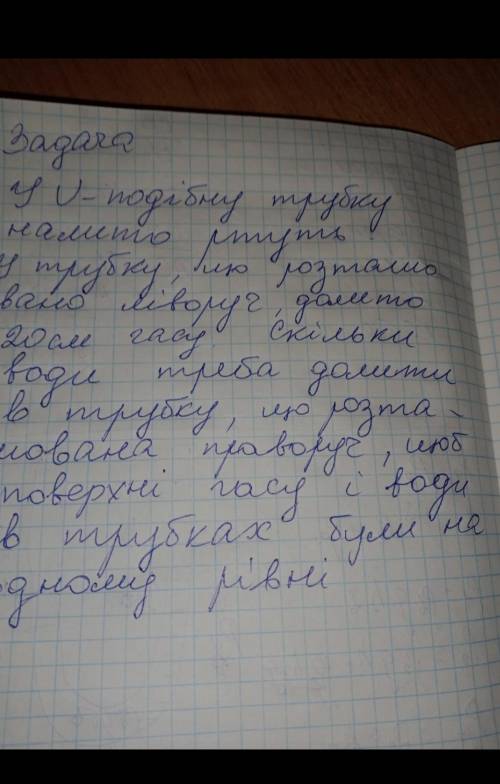 Задача
У U-подібну трубку
налито ртуть.
У трубку, що розташо
вано ліворуч, долито
20см гасу. Скільки
води треба долити
в трубку, що розта-
шована праворуч, щоб
поверхні гасу і води
в трубках були на
одному рівні